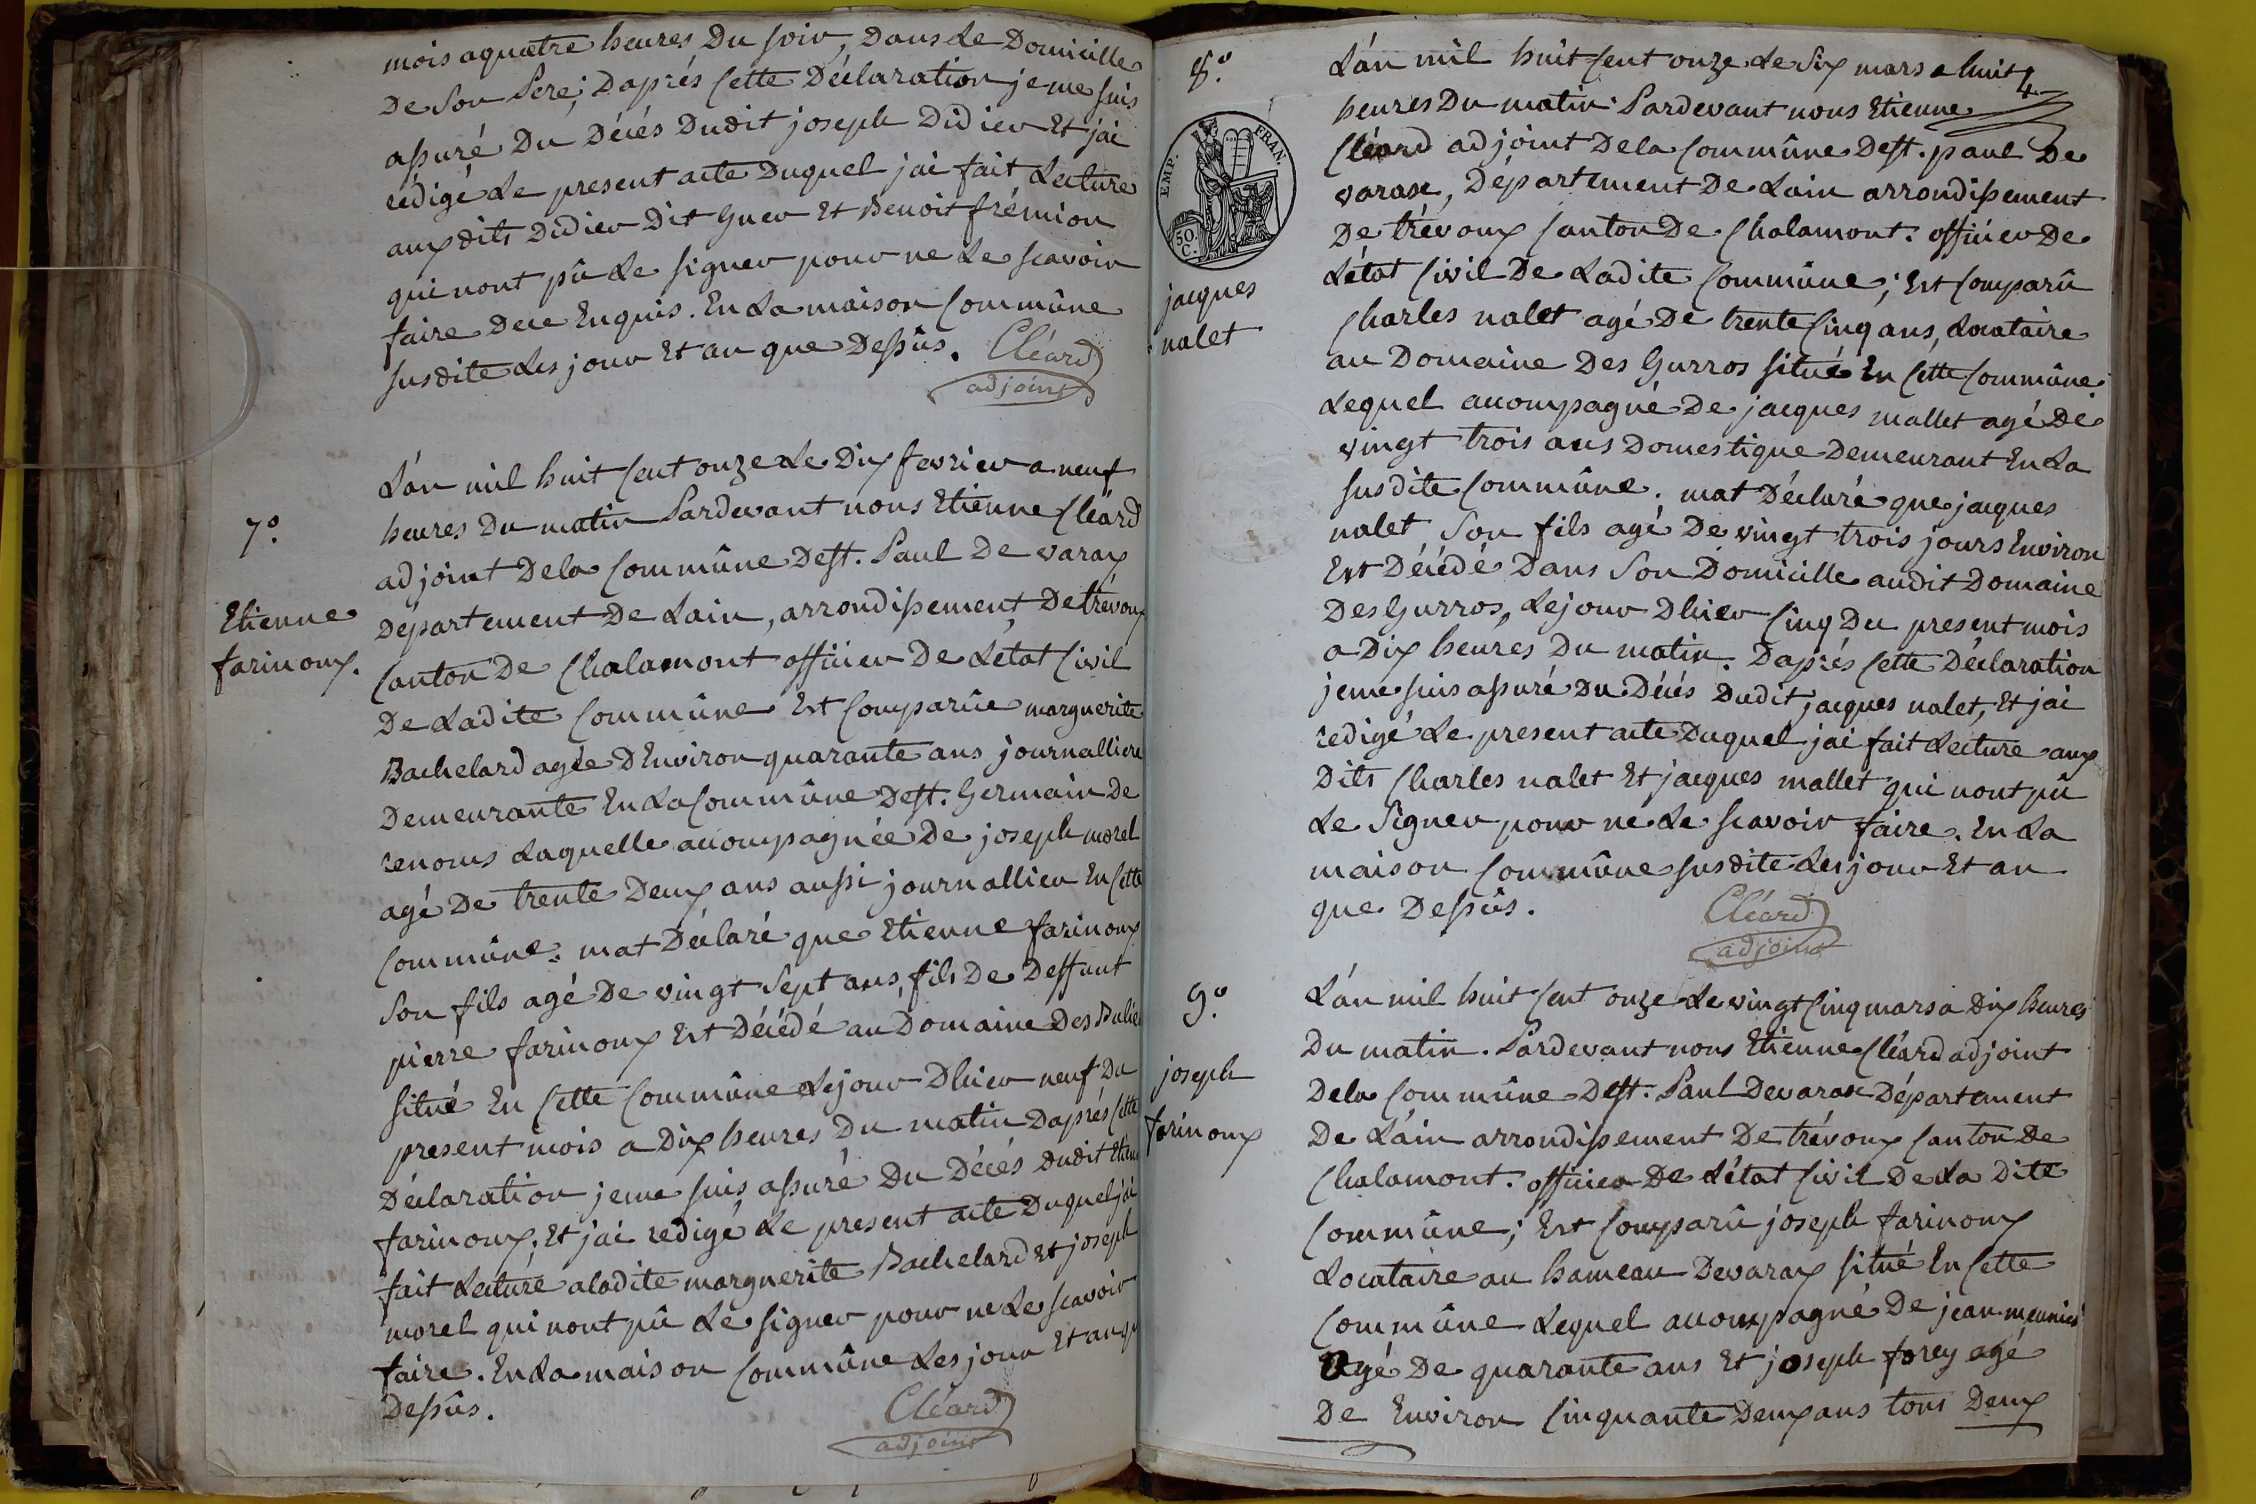 mois aquatre heures Du soir, Dans Le Domicille
De Son Pere; Daprés Cette Déclaration je me suis
assuré Du Décés Dudit joseph Didier Et jai
rédigé Le present acte Duquel jai fait Lecture
aux dits Didier Dit Guer Et Benoit frémion
qui nont pû Le signer pour ne Le scavoir
faire Dece Enquis. En La maison Commûne
susdite Les jour Et an que Dessûs. Cléard
adjoint
7.°
Etienne
farinoux.
L'an mil huit Cent onze Le Dix fevrier a neuf
heures Du matin Pardevant nous Etienne Cléard
adjoint Dela Commûne Dest. Paul De varax
Département De Lain, arrondissement De trévoux
Canton De Chalamont officier De L'état Civil
De Ladite Commûne Est Comparûe marguerite
Bachelard agée DEnviron quarante ans journalliere
Demeurante En La Commûne Dest. Germain De
renoms Laquelle accompagnée De joseph morel
agé De trente Deux ans aussi journallier En Cette
Commûne. mat Déclaré que Etienne farinoux
Son fils agé De vingt Sept ans, fils De Deffunt
pierre farinoux Est Décédé au Domaine Des
situé En Cette Commûne Le jour Dhier neuf Du
present mois a Dix heures Du matin Daprés Cette
Déclaration jeme suis assuré Du Décés Dudit Etienne
farinoux. Et jai redigé Le present acte Duquel jai
fait Lecture aladite marguerite Bachelard Et joseph
morel qui nont pû Le signer pour ne Le scavoir
faire. En La maison Commûne Les jour Et an qu
Dessûs.
Cléard
adjoint
8.°
EMP. FRAN.
50 C.
jacques
nalet
4
L'an mil huit Cent onze Le Six mars a huit
heures Du matin Pardevant nous Etienne
Cléard adjoint Dela Commûne Dest. paul De
varax, Département De Lain arrondissement
De trévoux Canton De Chalamont. officier De
L'état Civil De Ladite Commûne; Est Comparû
Charles nalet agé De trente Cinq ans, Locataire
au Domaine Des Gurros situé En Cette Commûne
Lequel accompagné De jacques mallet agé De
vingt trois ans Domestique Demeurant En La
susdite Commûne. mat Déclaré que jacques
nalet Son fils agé De vingt trois jours Environ
Est Décédé Dans Son Domicille audit Domaine
Des Gurros, Le jour Dhier Cinq Du present mois
a Dix heures Du matin. Daprés Cette Déclaration
jeme suis assuré Du Décés Dudit jacques nalet, Et jai
redigé Le present acte Duquel jai fait Lecture aux
Dits Charles nalet Et jacques mallet qui nont pû
Le Signer pour ne Le scavoir faire. En La
maison Commûne susdite Les jour Et an
que Dessûs.
Cléard
adjoint
9.°
joseph
farinoux
L'an mil huit Cent onze Le vingt Cinq mars a Dix heures
Du matin. Pardevant nous Etienne Cléard adjoint
Dela Commûne Dest. Paul Devarax Département
De L'ain arrondissement De trévoux Canton De
Chalamont. officier De L'état Civil De La Dite
Commûne; Est Comparû joseph farinoux
Locataire au hameau Devarax situé En Cette
Commûne Lequel accompagné De jean meunier
agé De quarante ans Et joseph forey agé
De Environ Cinquante Deux ans tous Deux